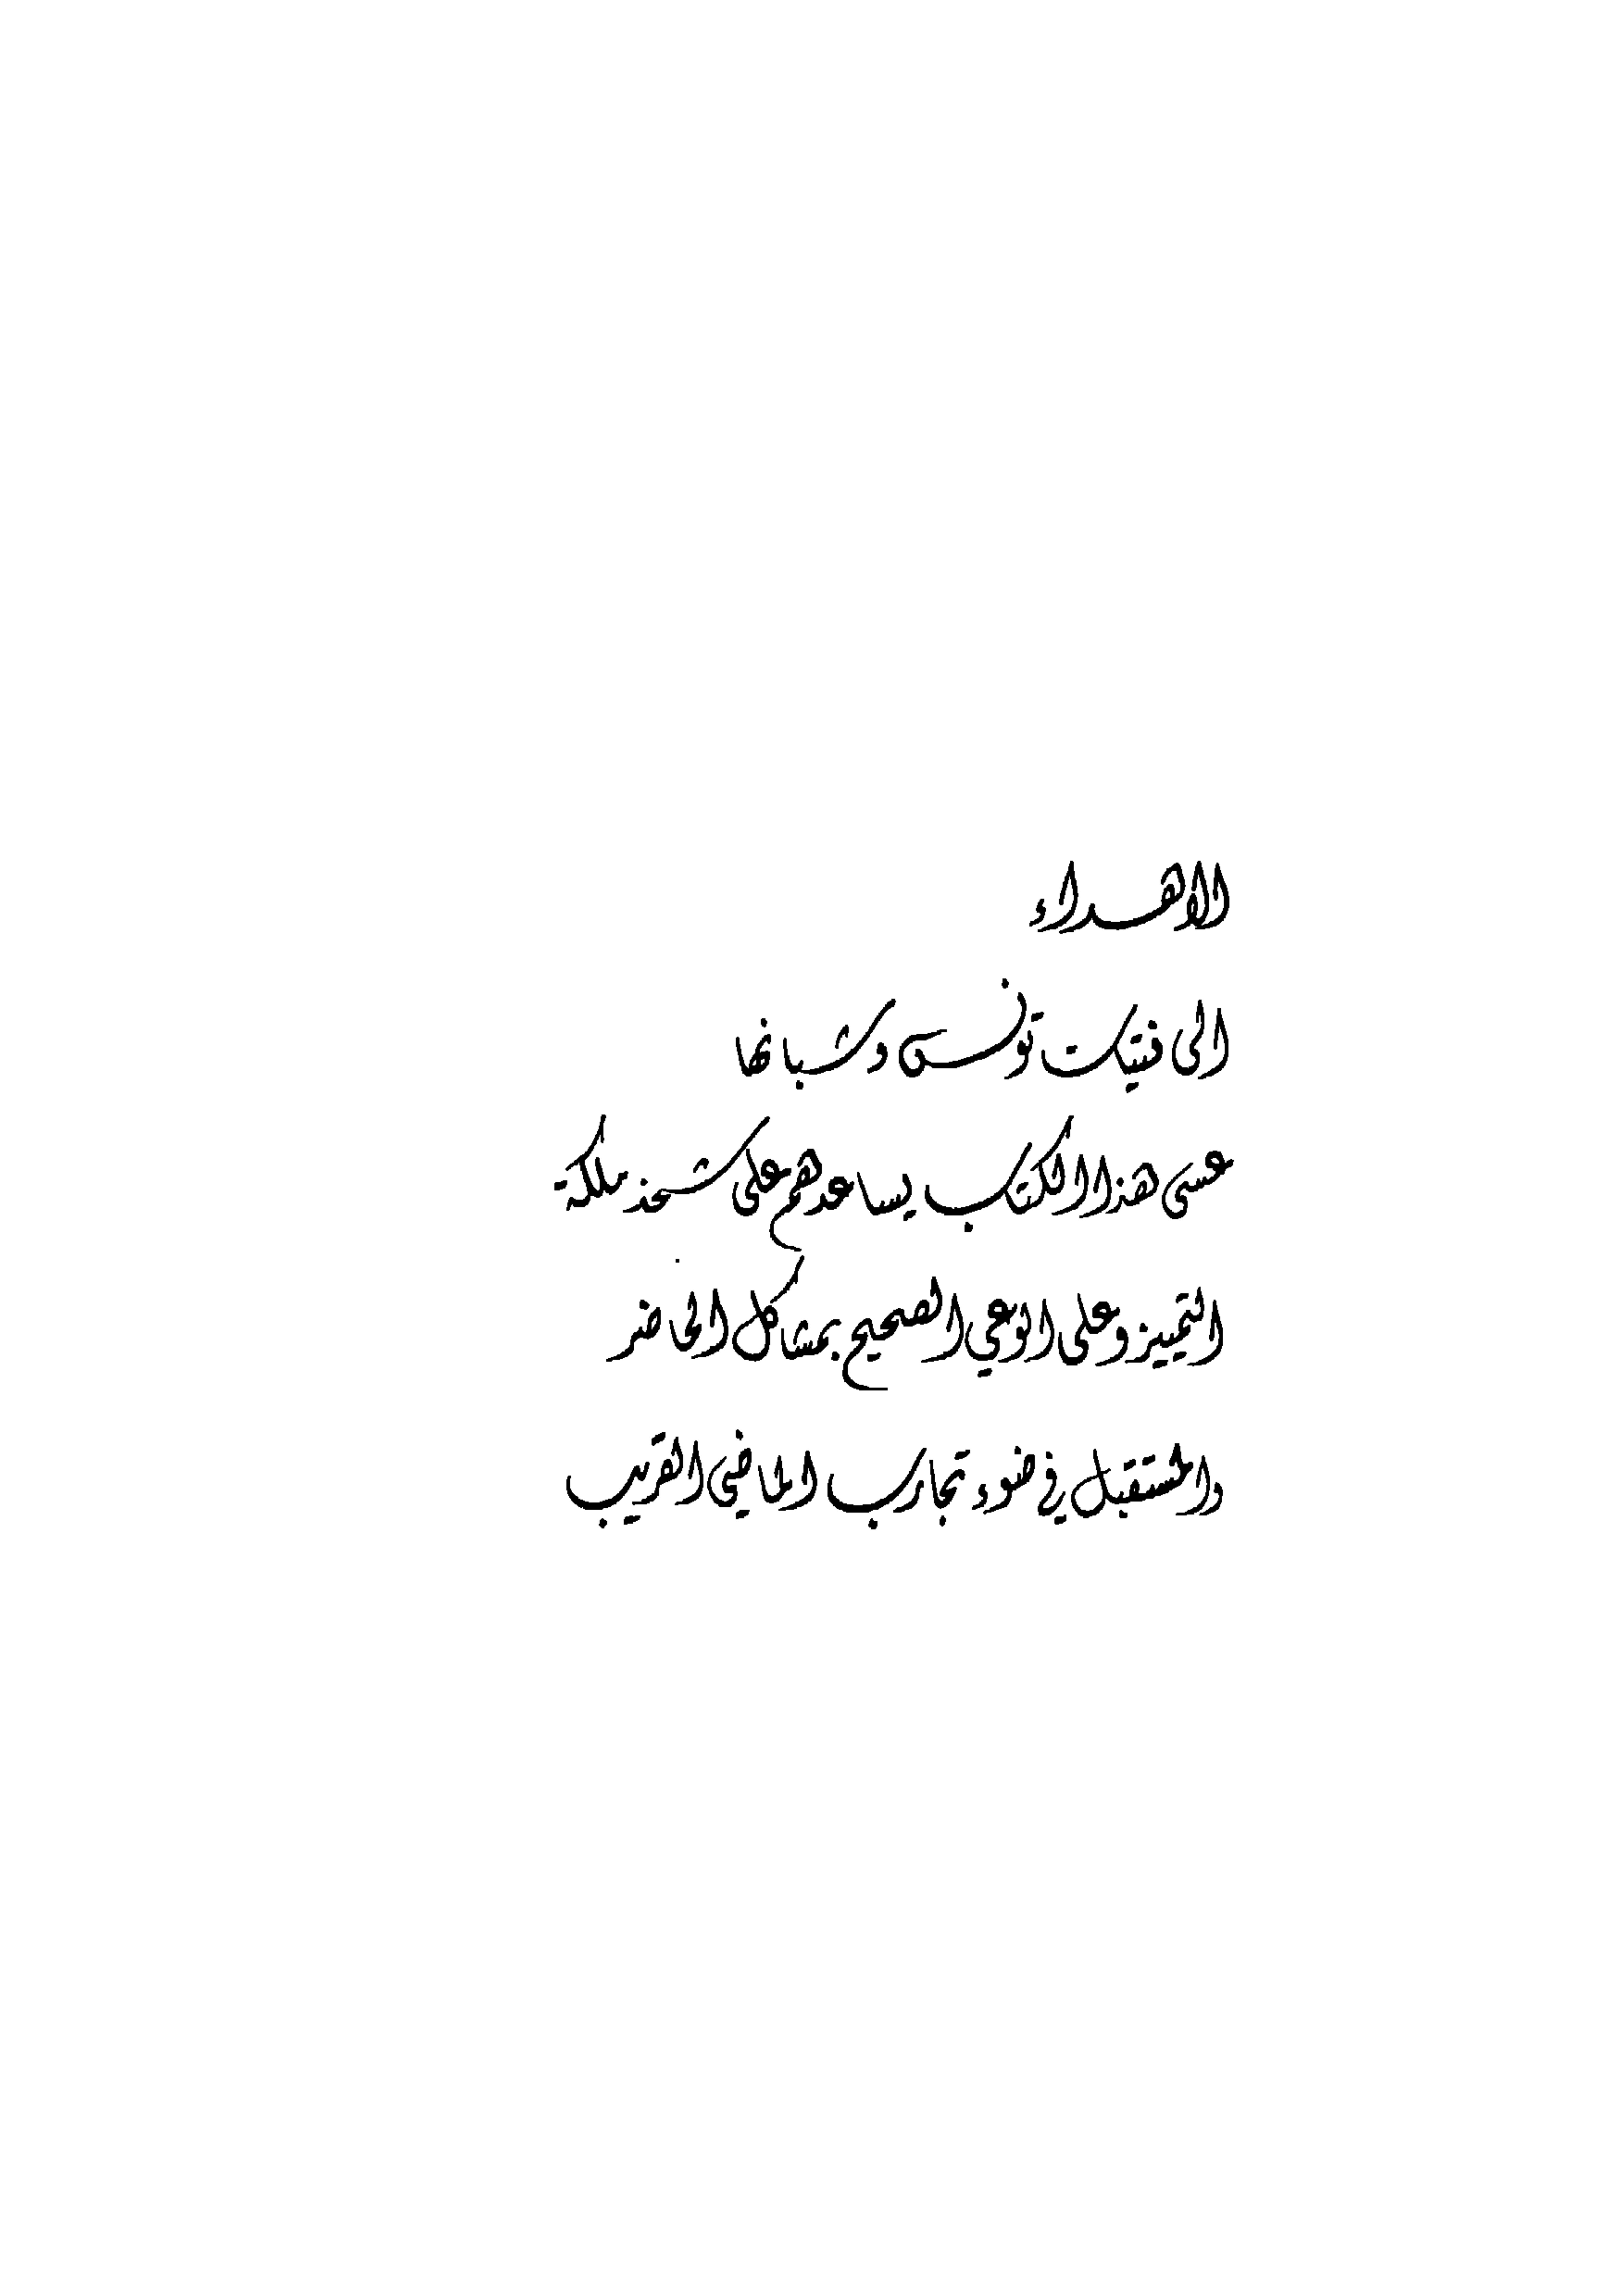 الاهداء
الى فتيات تونس وشبانها
عسى هذا الكتاب يساعدهم على شحذ ملكة
التمييز وعلى الوعي الصحيح بمشاكل الحاضر
والمستقبل في ضوء تجارب الماضي القريب